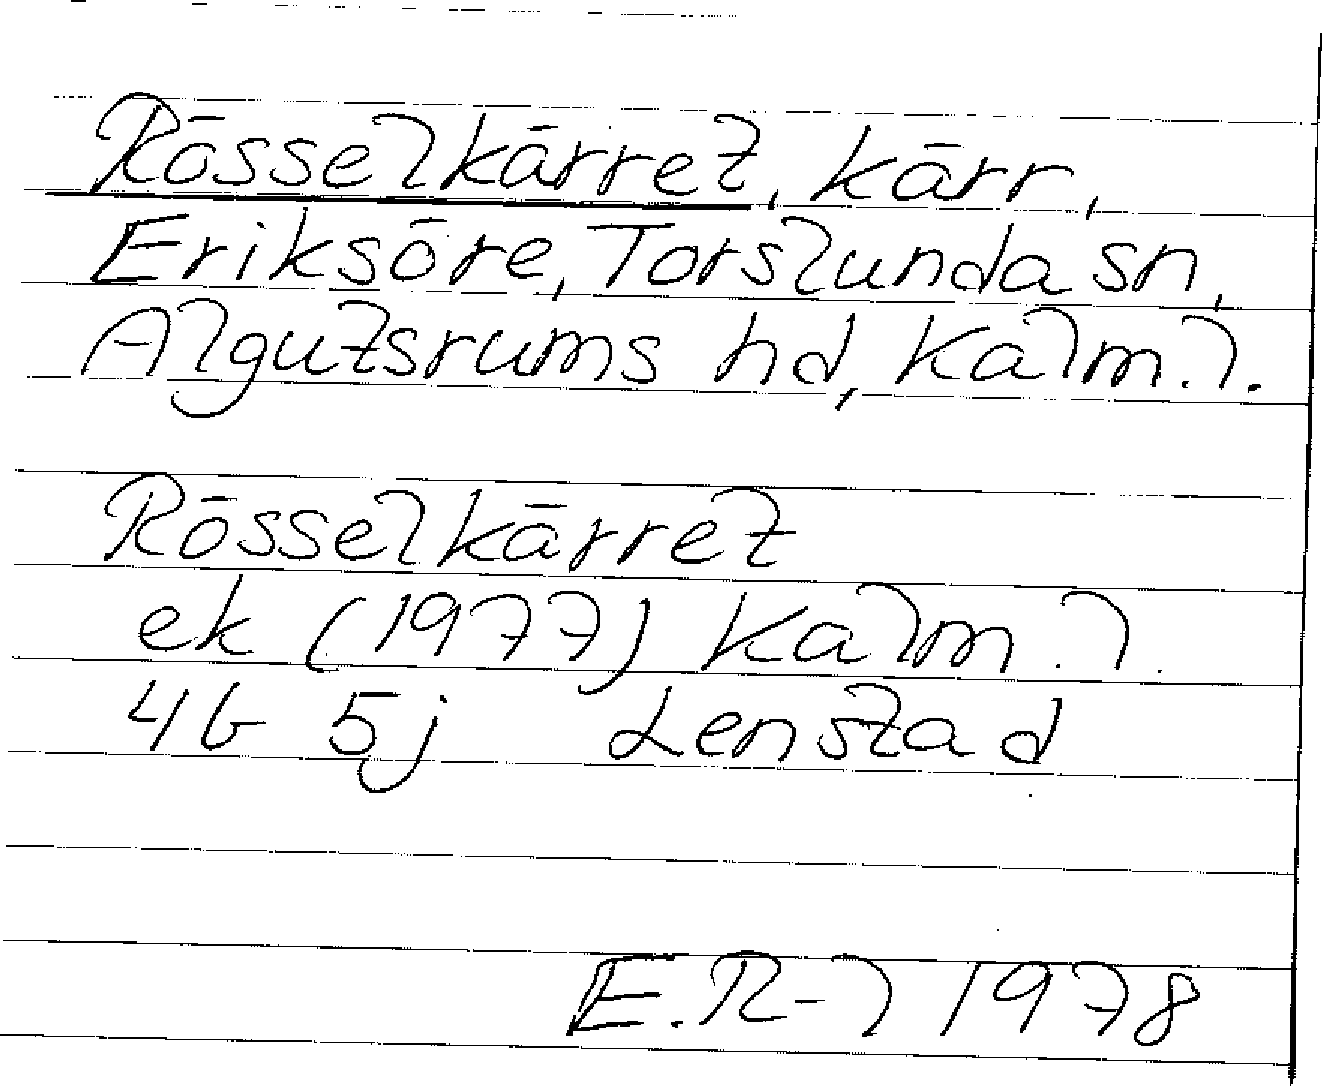 Rösselkärret, kärr,
Eriksöre, Torslunda sn,
Algutsrums hd, Kalm. l.
Rösselkärret
ek (1977) Kalm. l.
4G 5j Lenstad
E. R-l 1978